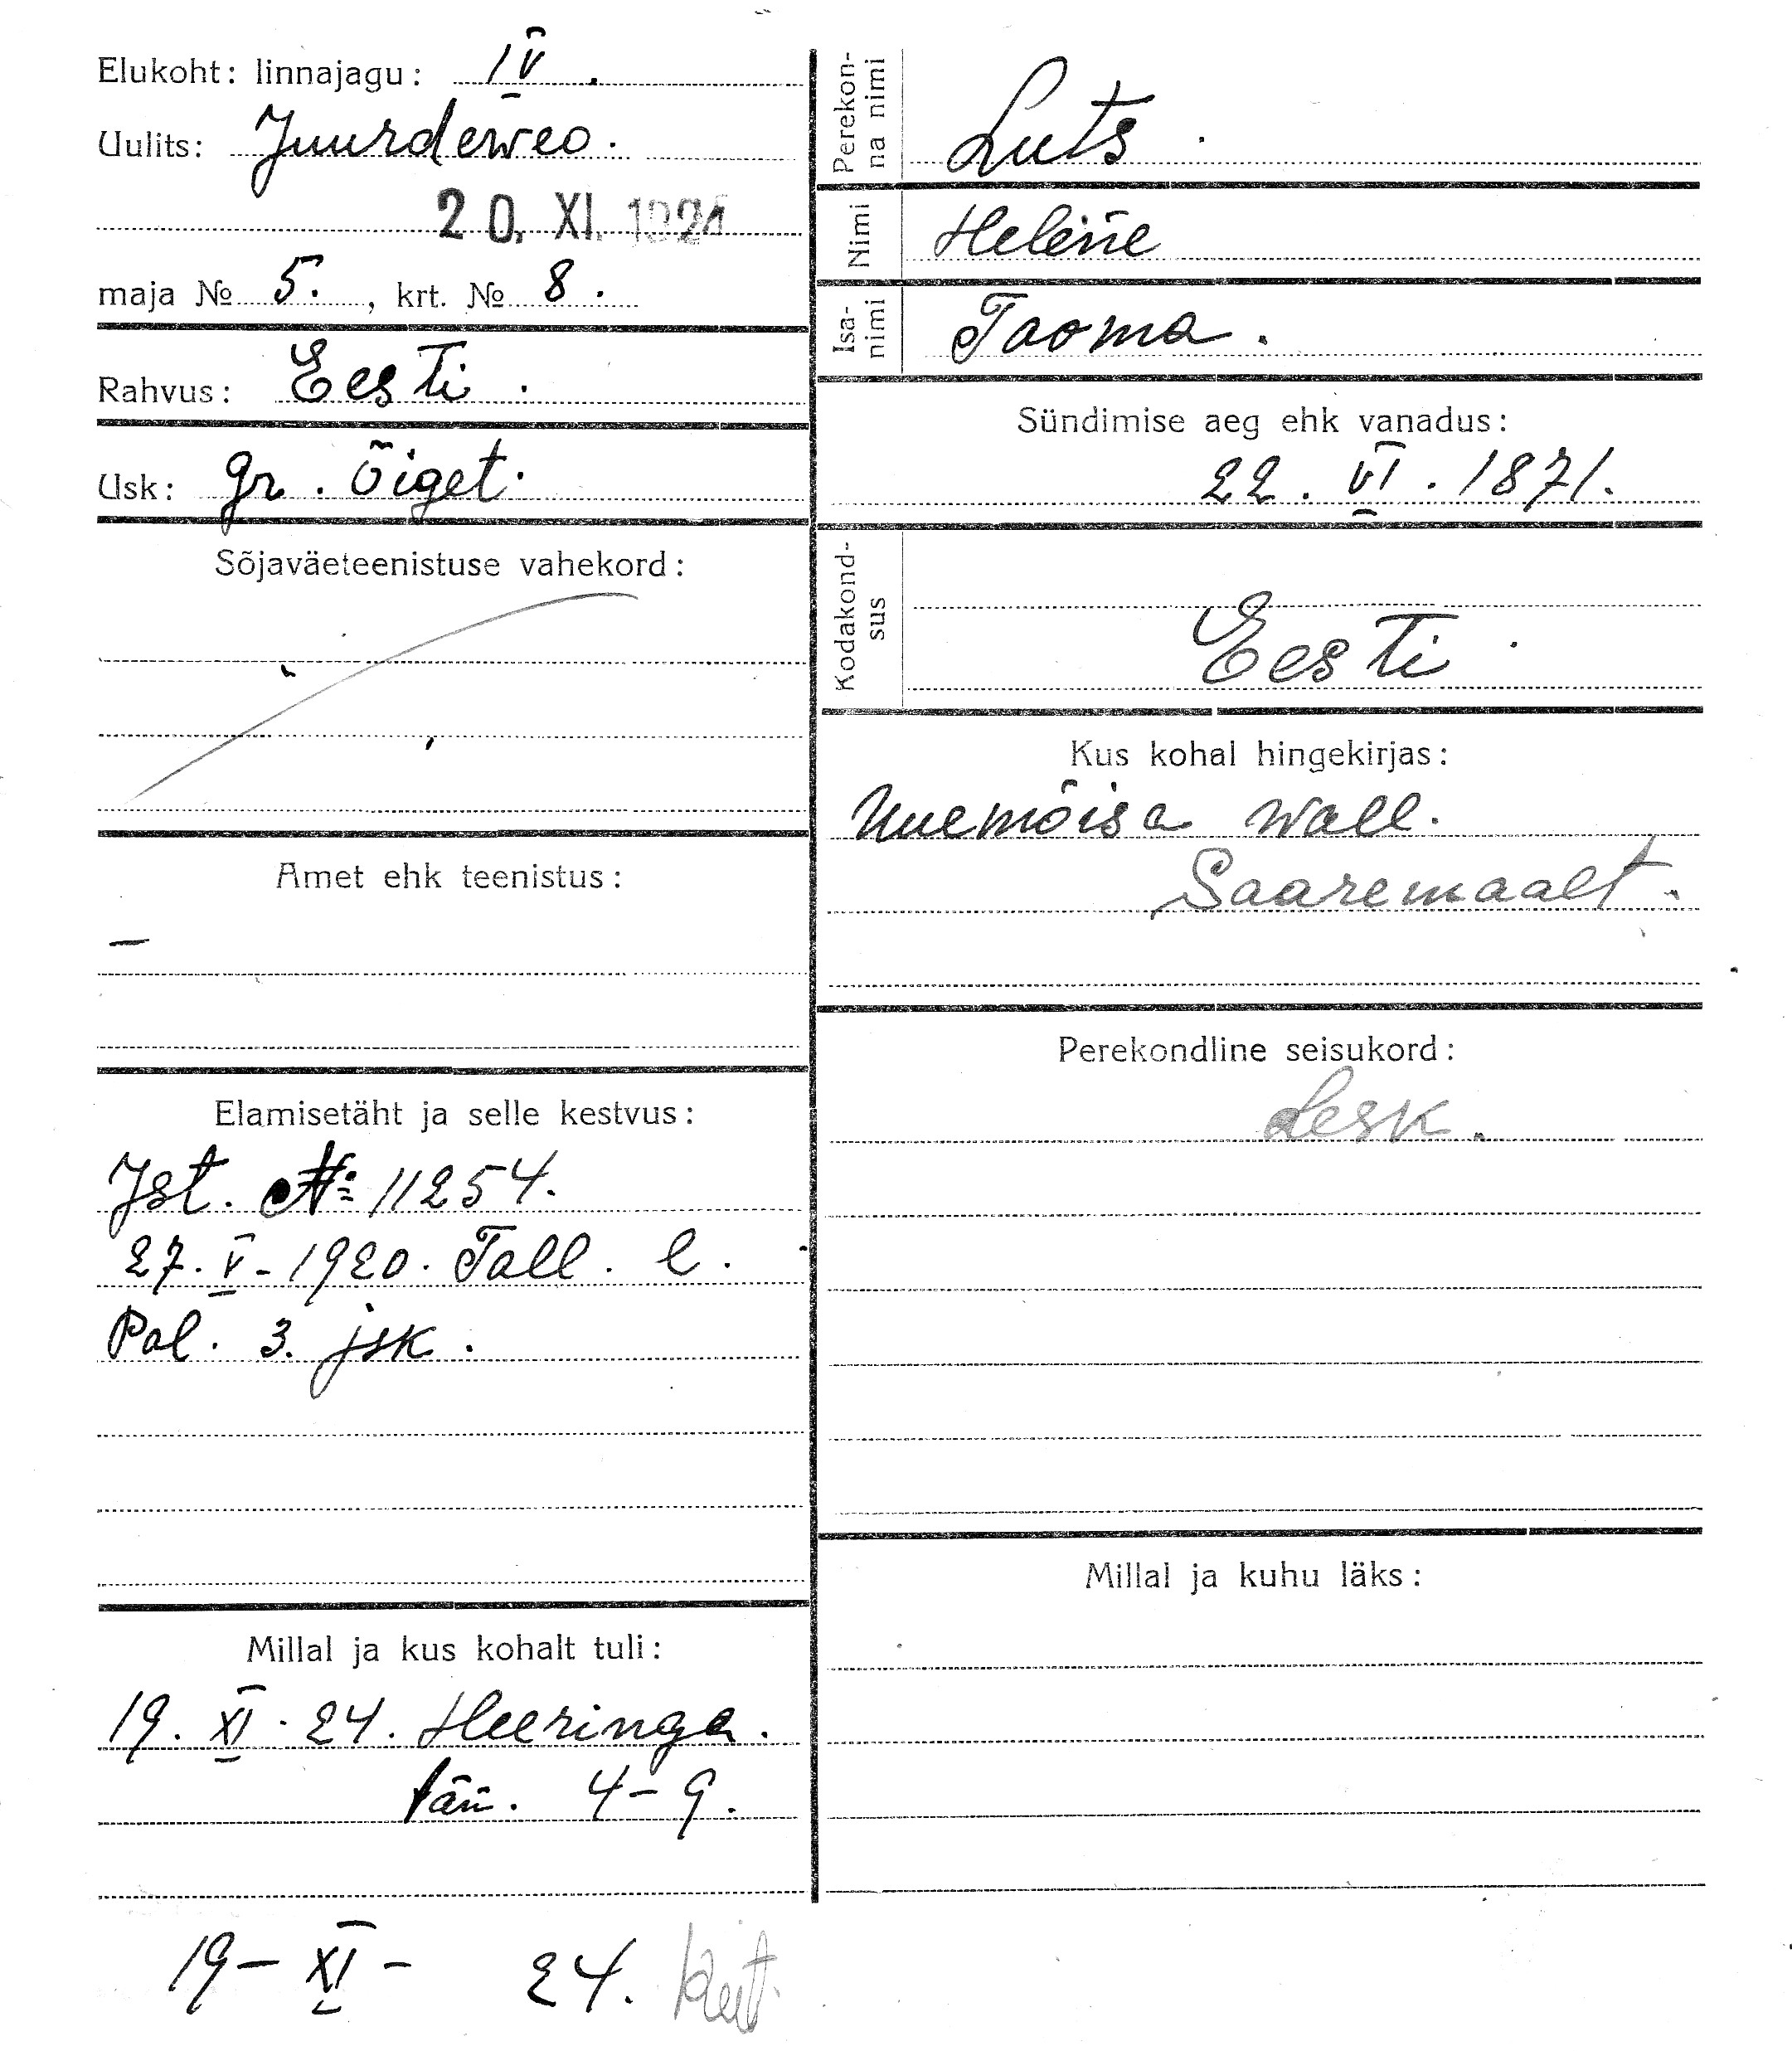 Elukoht: linnajagu: IV.
Uulits: Juurdeweo.
20. XI. 1924
maja № 5. , krt. № 8.
Rahvus: Eesti.
Usk: gr. õiget.
Sõjaväeteenistuse vahekord:
Amet ehk teenistus:
—
Elamisetäht ja selle kestvus:
Ist. №: 11254.
27. V - 1920. Tall. l.
Pol. 3. jsk.
Millal ja kus kohalt tuli:
19. XI. 24. Heeringa.
tän. 4-9.
19 - XI - 24.
Perekonna nimi
Luts.
Nimi
Helene
Isanimi
Tooma.
Sündimise aeg ehk vanadus:
22. VI. 1871.
Kodakondsus
Eesti.
Kus kohal hingekirjas:
Uuemõisa wall.
Saaremaalt.
Perekondline seisukord:
Lesk.
Millal ja kuhu läks: